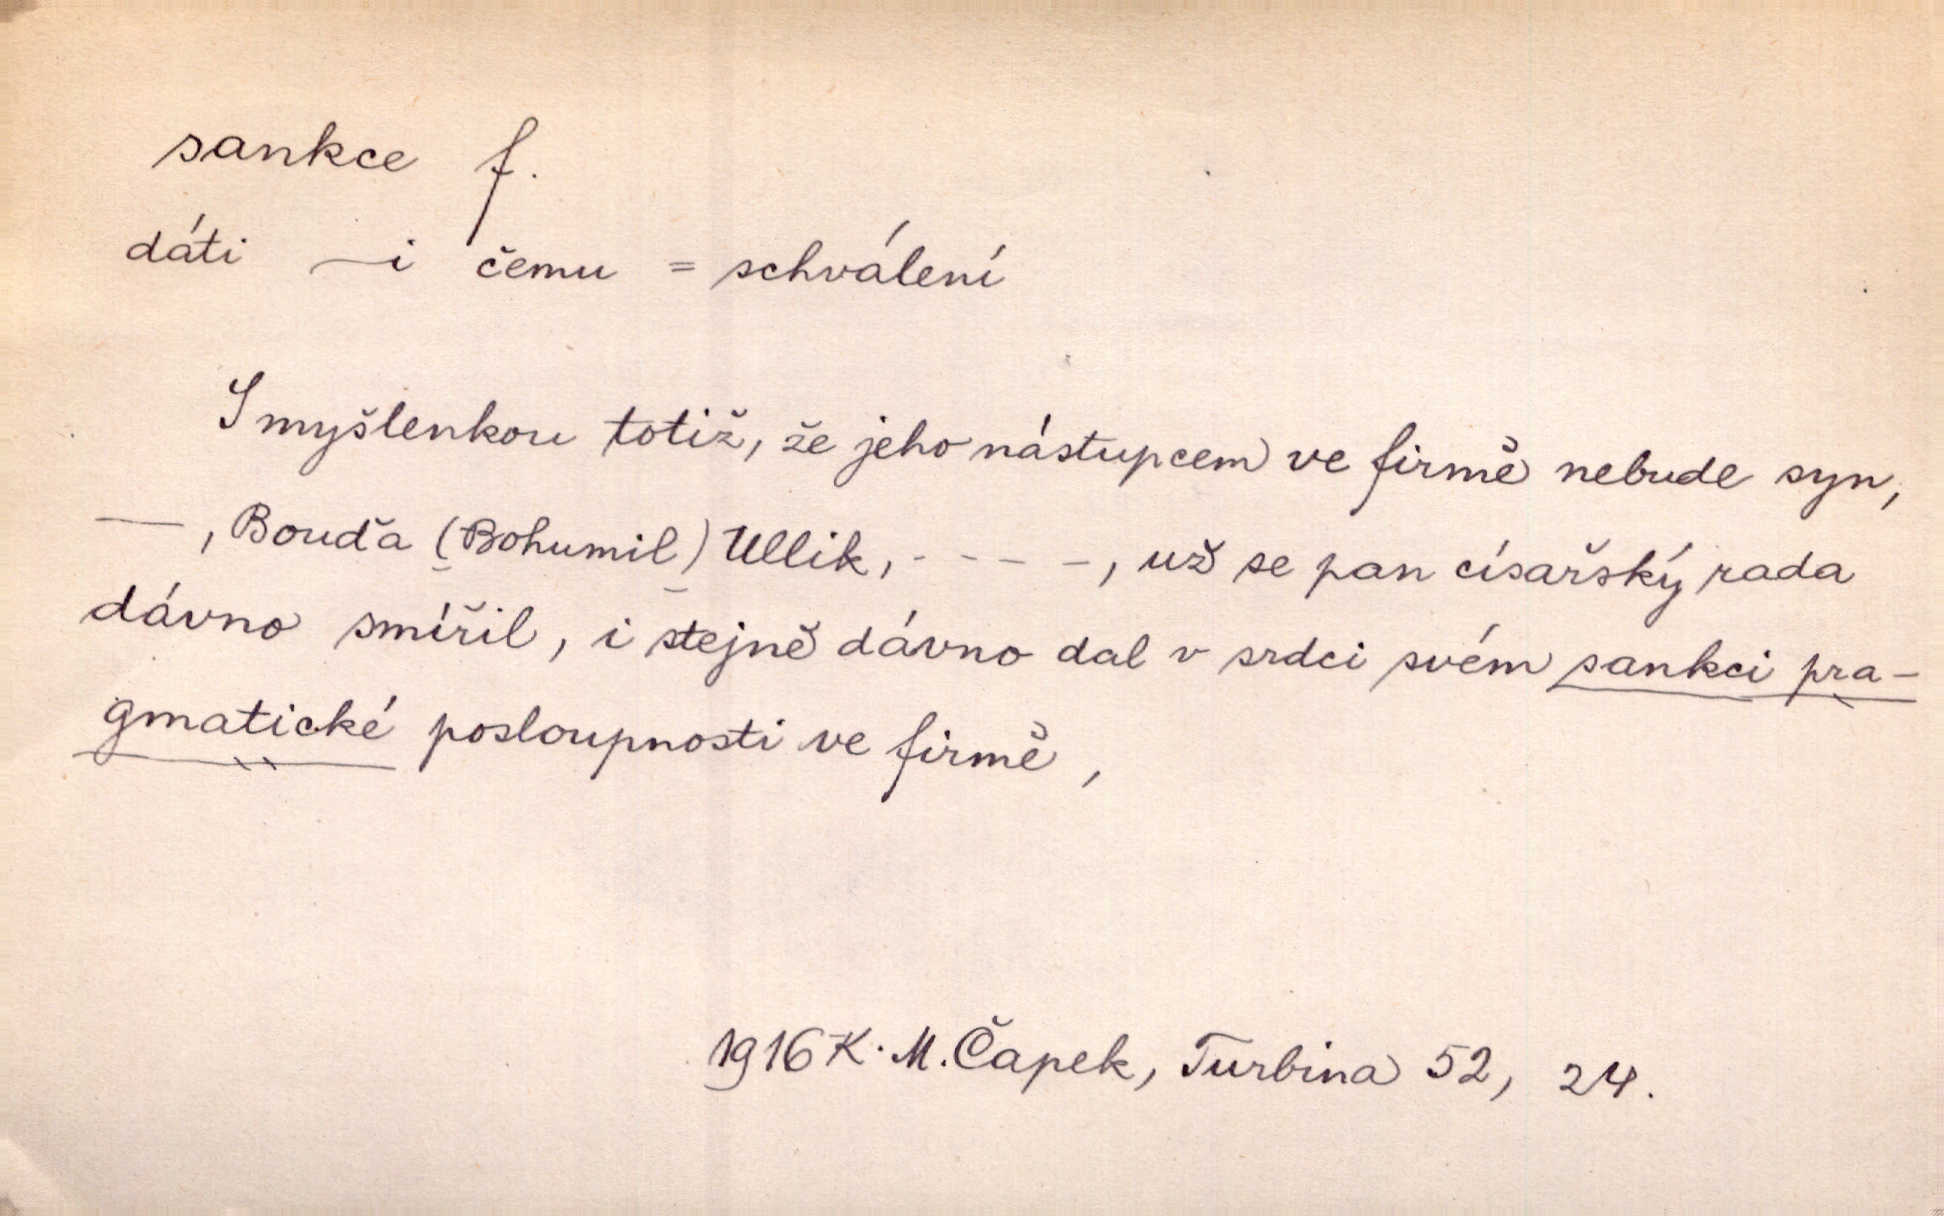 sankce f.
dáti —i čemu = schválení
S myšlenkou totiž, že jeho nástupcem ve firmě nebude syn,
—, Bouďa (Bohumil) Ullik, - - - -, už se pan císařský rada
dávno smířil, i stejně dávno dal v srdci svém sankci pra-
gmatické posloupnosti ve firmě,
1916 K. M. Čapek, Turbina 52, 24.